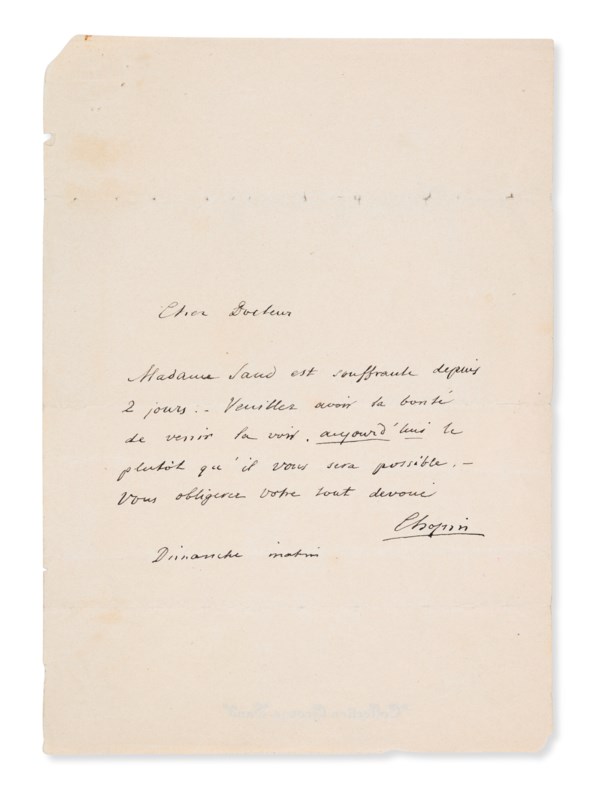 Cher Docteur
Madame Sand est souffrante depuis
2 jours. – Veuillez avoir la bonté
de venir la voir, aujourd'hui le
plutôt qu'il vous sera possible. –
Vous obligerez votre tout devoué
Chopin
Dimanche matin